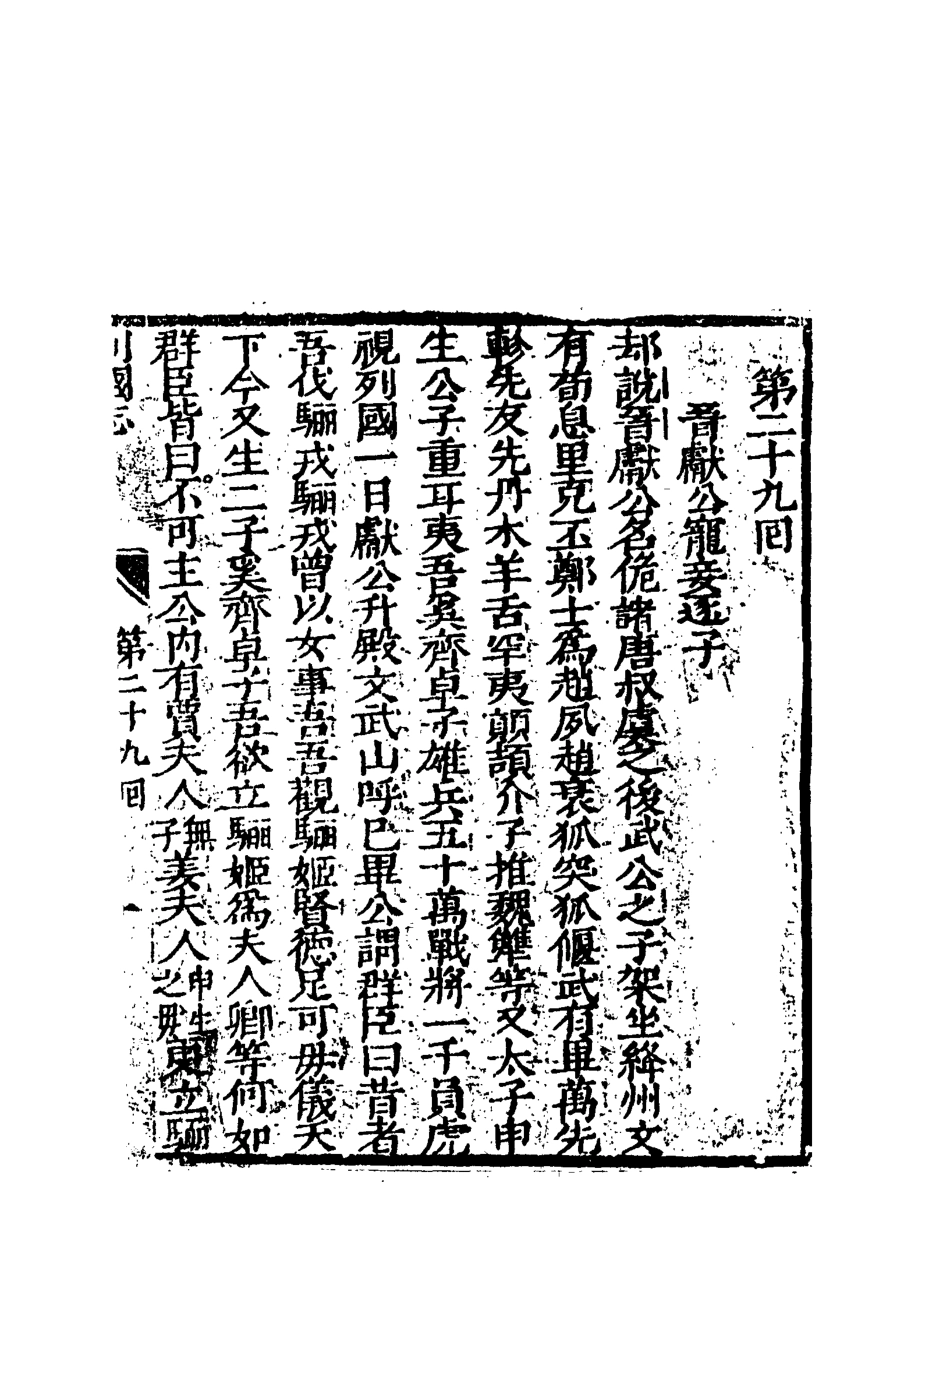 第二十九囘
晋獻公寵妾逐子
却說晋獻公名佹諸唐叔虞之後武公之子架坐絳州文
有荀息里克丕鄭士爲趙夙趙衰狐突狐偃武有畢萬先
軫先友先丹木羊舌罕夷顛頡介子推魏犨等又太子申
生公子重耳夷吾奚齊卓子雄兵五十萬戰將一千員虎
視列國一日獻公升殿文武山呼已畢公謂群臣曰昔者
吾伐驪戎驪戎曽以女事吾吾觀驪姬賢徳足可毋儀天
下今又生二子奚齊卓子吾欲立驪姬爲夫人卿等何如
群臣皆曰不可主公内有賈夫人無子姜夫人申生之毋東立驪
列國志 第二十九囘 一